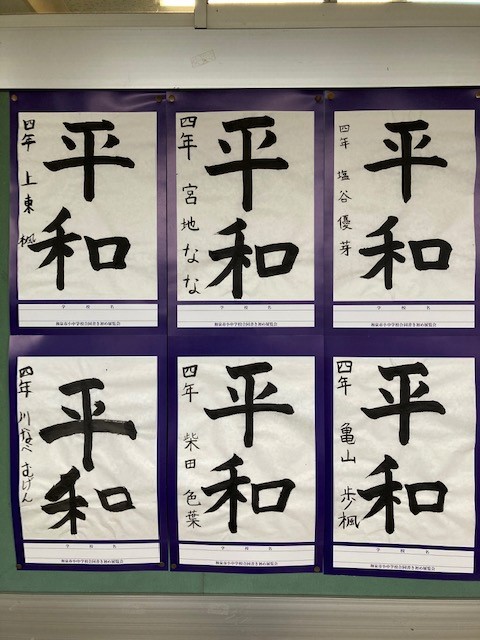 平和
四年 上東 楓
学 校 名
平和
四年 宮地 なな
学 校 名
平和
四年 塩谷 優芽
学 校 名
平和
四年 川なべ むげん
学 校 名
平和
四年 柴田 色葉
学 校 名
平和
四年 亀山 歩楓
学 校 名